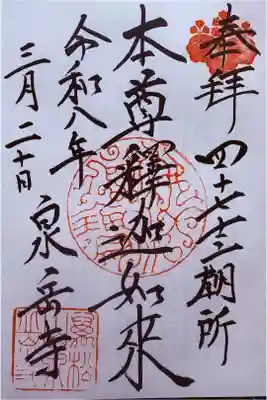 奉拝 四十七士廟所
本尊釋迦如来
泉岳寺
令和八年
三月二十日